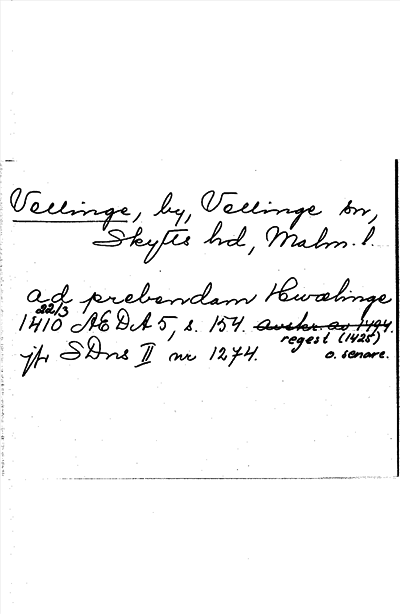 Vellinge, by, Vellinge sn,
Skytts hd, Malm. l.
ad prebendam Hwælinge
22/3
1410 ÆDA 5, s. 154. avskr. av 1494.
regest (1425)
jfr SDns II nr 1274. o. senare.